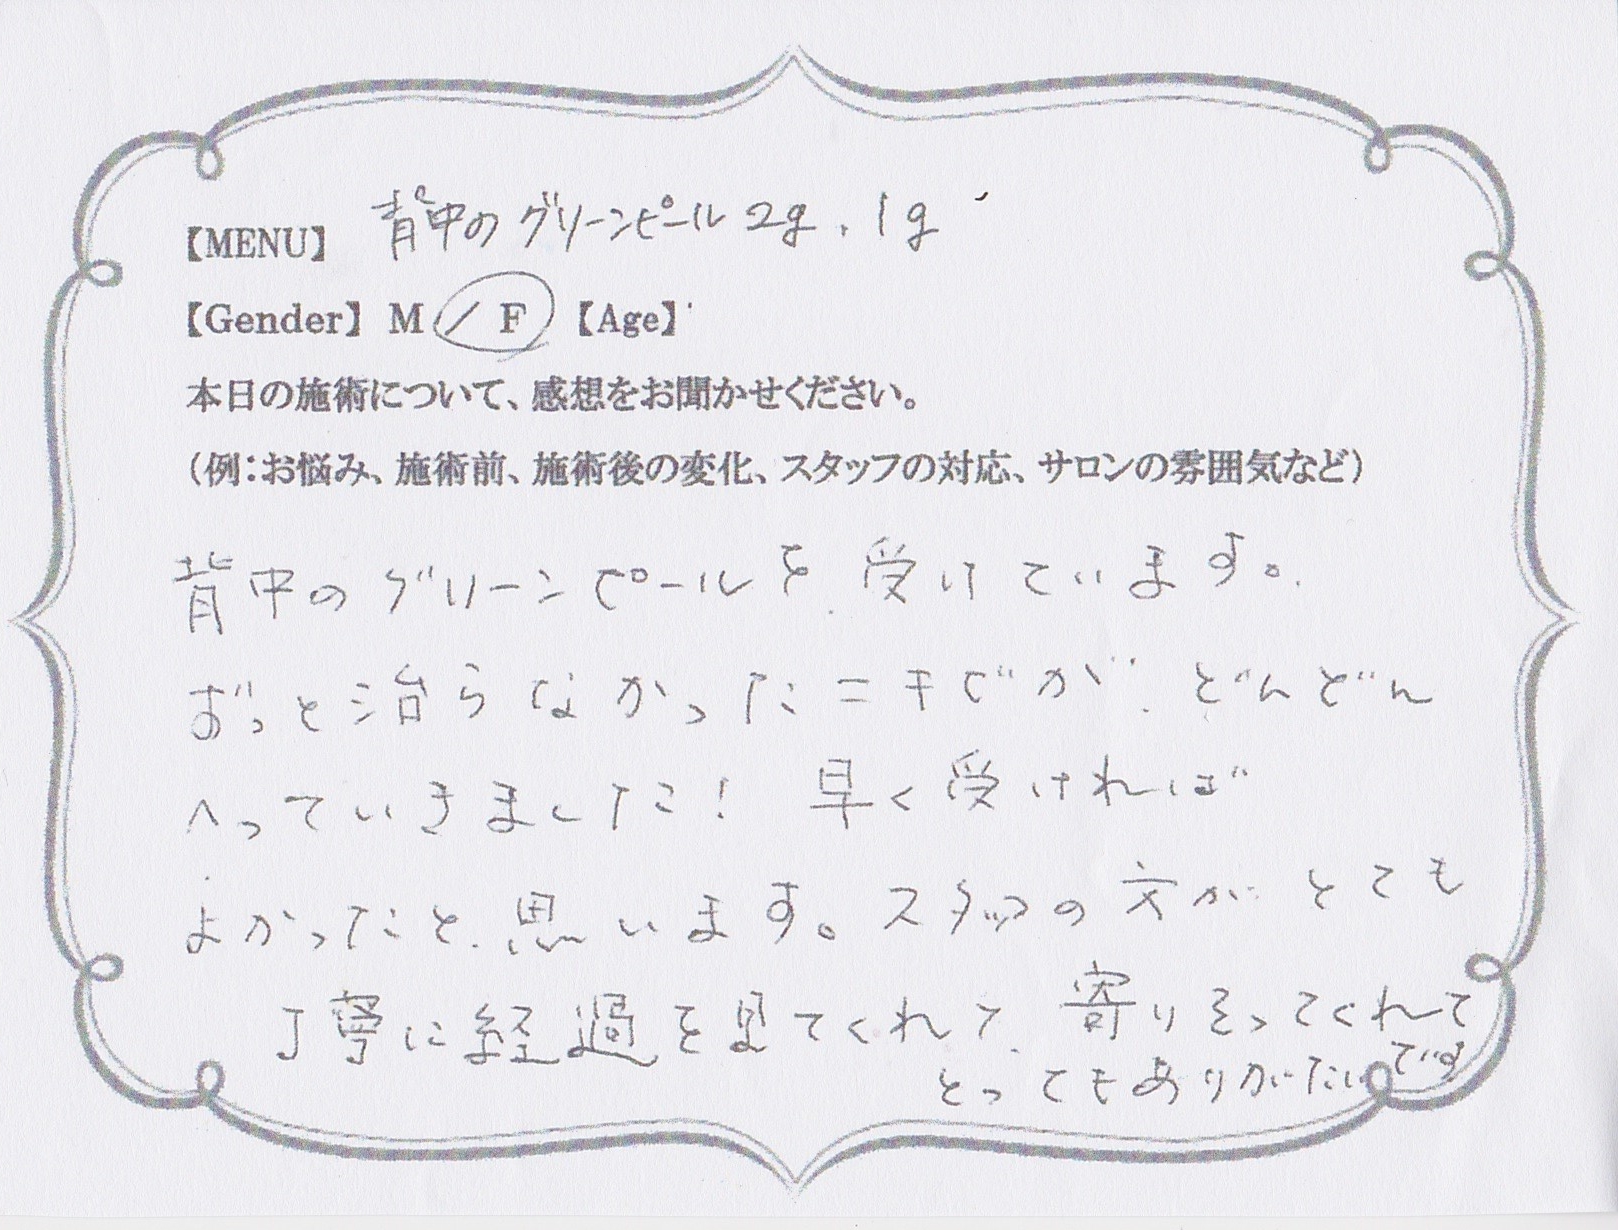 【MENU】 背中のグリーンピール 2g, 1g
【Gender】 M / F 【Age】
本日の施術について、感想をお聞かせください。
（例：お悩み、施術前、施術後の変化、スタッフの対応、サロンの雰囲気など）
背中のグリーンピールを受けています。
ずっと治らなかったニキビが、どんどん
へっていきました！ 早く受ければ
よかったと思います。スタッフの方がとても
丁寧に経過を見てくれて、寄りそってくれて
とってもありがたいです